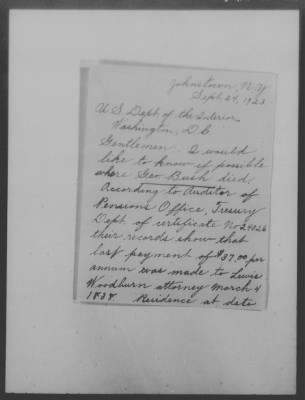 Johnstown, N.Y.
Sept. 24, 1923
U S Dept of the Interior
Washington, D.C.
Gentlemen: I would
like to know if possible
where Geo Bush died.
According to Auditor of
Pensions Office, Tresury
Dept. of certificate No 24026
their records show that
last payment of $37.00 per
annum was made to Lewis
Woodburn attorney March 4
1838. Residence at date